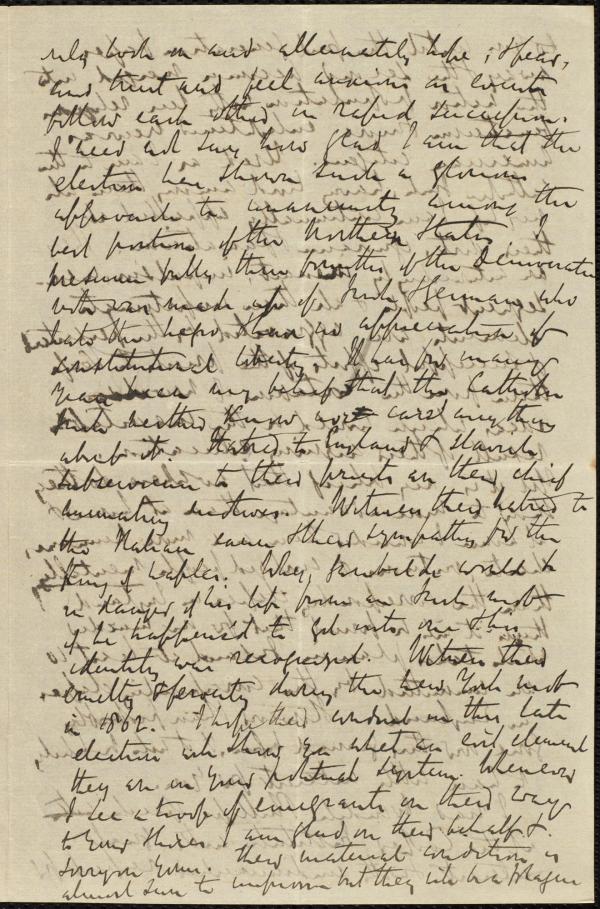 only look on and alternately hope & fear,
and trust and feel anxious as events
follow each other in rapid succession.
I need not say how glad I am that the
election has shown such a glorious
approach to unanimity among the
best portion of the Northern States. I
presume fully three fourths of the Democratic
vote was made up of Irish & Germans who
hate the negro & have no appreciation of
constitutional liberty. It has for many
years been my belief that the Catholic
Irish neither know nor care anything
about it. Hatred to England & slavish
subservience to their priests are their chief
animating motives. Witness their hatred to
the Italian cause & their sympathy for the
King of Naples. Why, Garibaldi would be
in danger of his life from an Irish mob
if he happened to get into one & his
identity was recognized. Witness their
cruelty & ferocity during the New York mob
in 1862. I hope their conduct in this late
election will show you what an evil element
they are in your political system. Whenever
I see a troop of emigrants on their way
to your shores I am glad on their behalf &
sorry on yours. Their material condition is
almost sure to improve but they will be a plague